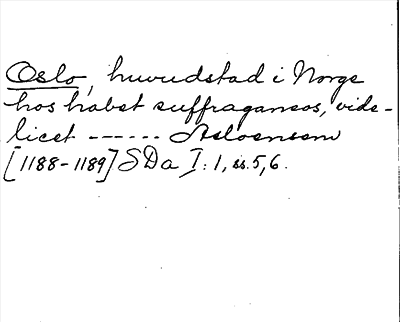 Oslo, huvudstad i Norge
hos habet suffraganeos, vide-
licet ------ Asloensem
[1188-1189] SDa I:1, ss. 5, 6.